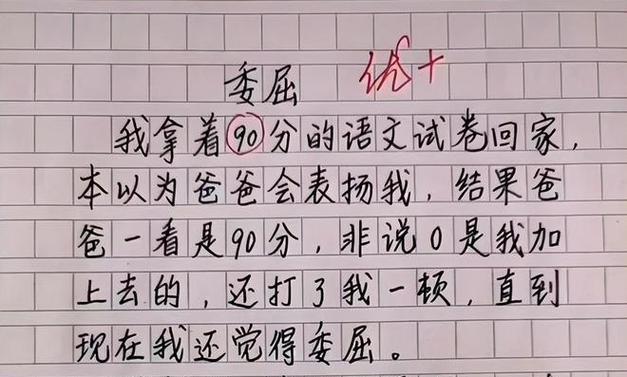 委屈 优+
我拿着90分的语文试卷回家，
本以为爸爸会表扬我，结果爸
爸一看是90分，非说0是我加
上去的，还打了我一顿，直到
现在我还觉得委屈。